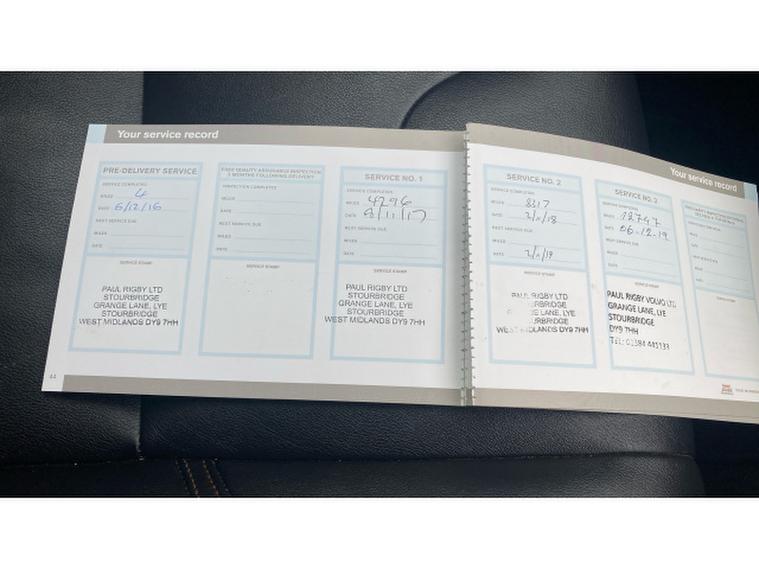 Your service record
PRE-DELIVERY SERVICE
SERVICE COMPLETED
MILES 4
DATE 6/12/16
NEXT SERVICE DUE
MILES
DATE
SERVICE STAMP
PAUL RIGBY LTD
STOURBRIDGE
GRANGE LANE, LYE
STOURBRIDGE
WEST MIDLANDS DY9 7HH
44
FREE QUALITY ASSURANCE INSPECTION
3 MONTHS FOLLOWING DELIVERY
INSPECTION COMPLETED
MILES
DATE
NEXT SERVICE DUE
MILES
DATE
SERVICE STAMP
SERVICE NO. 1
SERVICE COMPLETED
MILES 4296
DATE 9/11/17
NEXT SERVICE DUE
MILES
DATE
SERVICE STAMP
PAUL RIGBY LTD
STOURBRIDGE
GRANGE LANE, LYE
STOURBRIDGE
WEST MIDLANDS DY9 7HH
Your service record
SERVICE NO. 2
SERVICE COMPLETED
MILES 8317
DATE 2/11/18
NEXT SERVICE DUE
MILES
DATE 2/11/19
SERVICE STAMP
PAUL RIGBY LTD
RBRIDGE
GE LANE, LYE
URBRIDGE
WEST MIDLANDS DY9 7HH
SERVICE NO.
SERVICE COMPLETED
MILES 12747
DATE 06.12.19
NEXT SERVICE DUE
MILES
DATE
SERVICE STAMP
PAUL RIGBY VOLVO LTD
GRANGE LANE, LYE
STOURBRIDGE
DY9 7HH
TEL: 01384 441133
MILES
DATE
NEXT SERVICE DUE
MILES
DATE